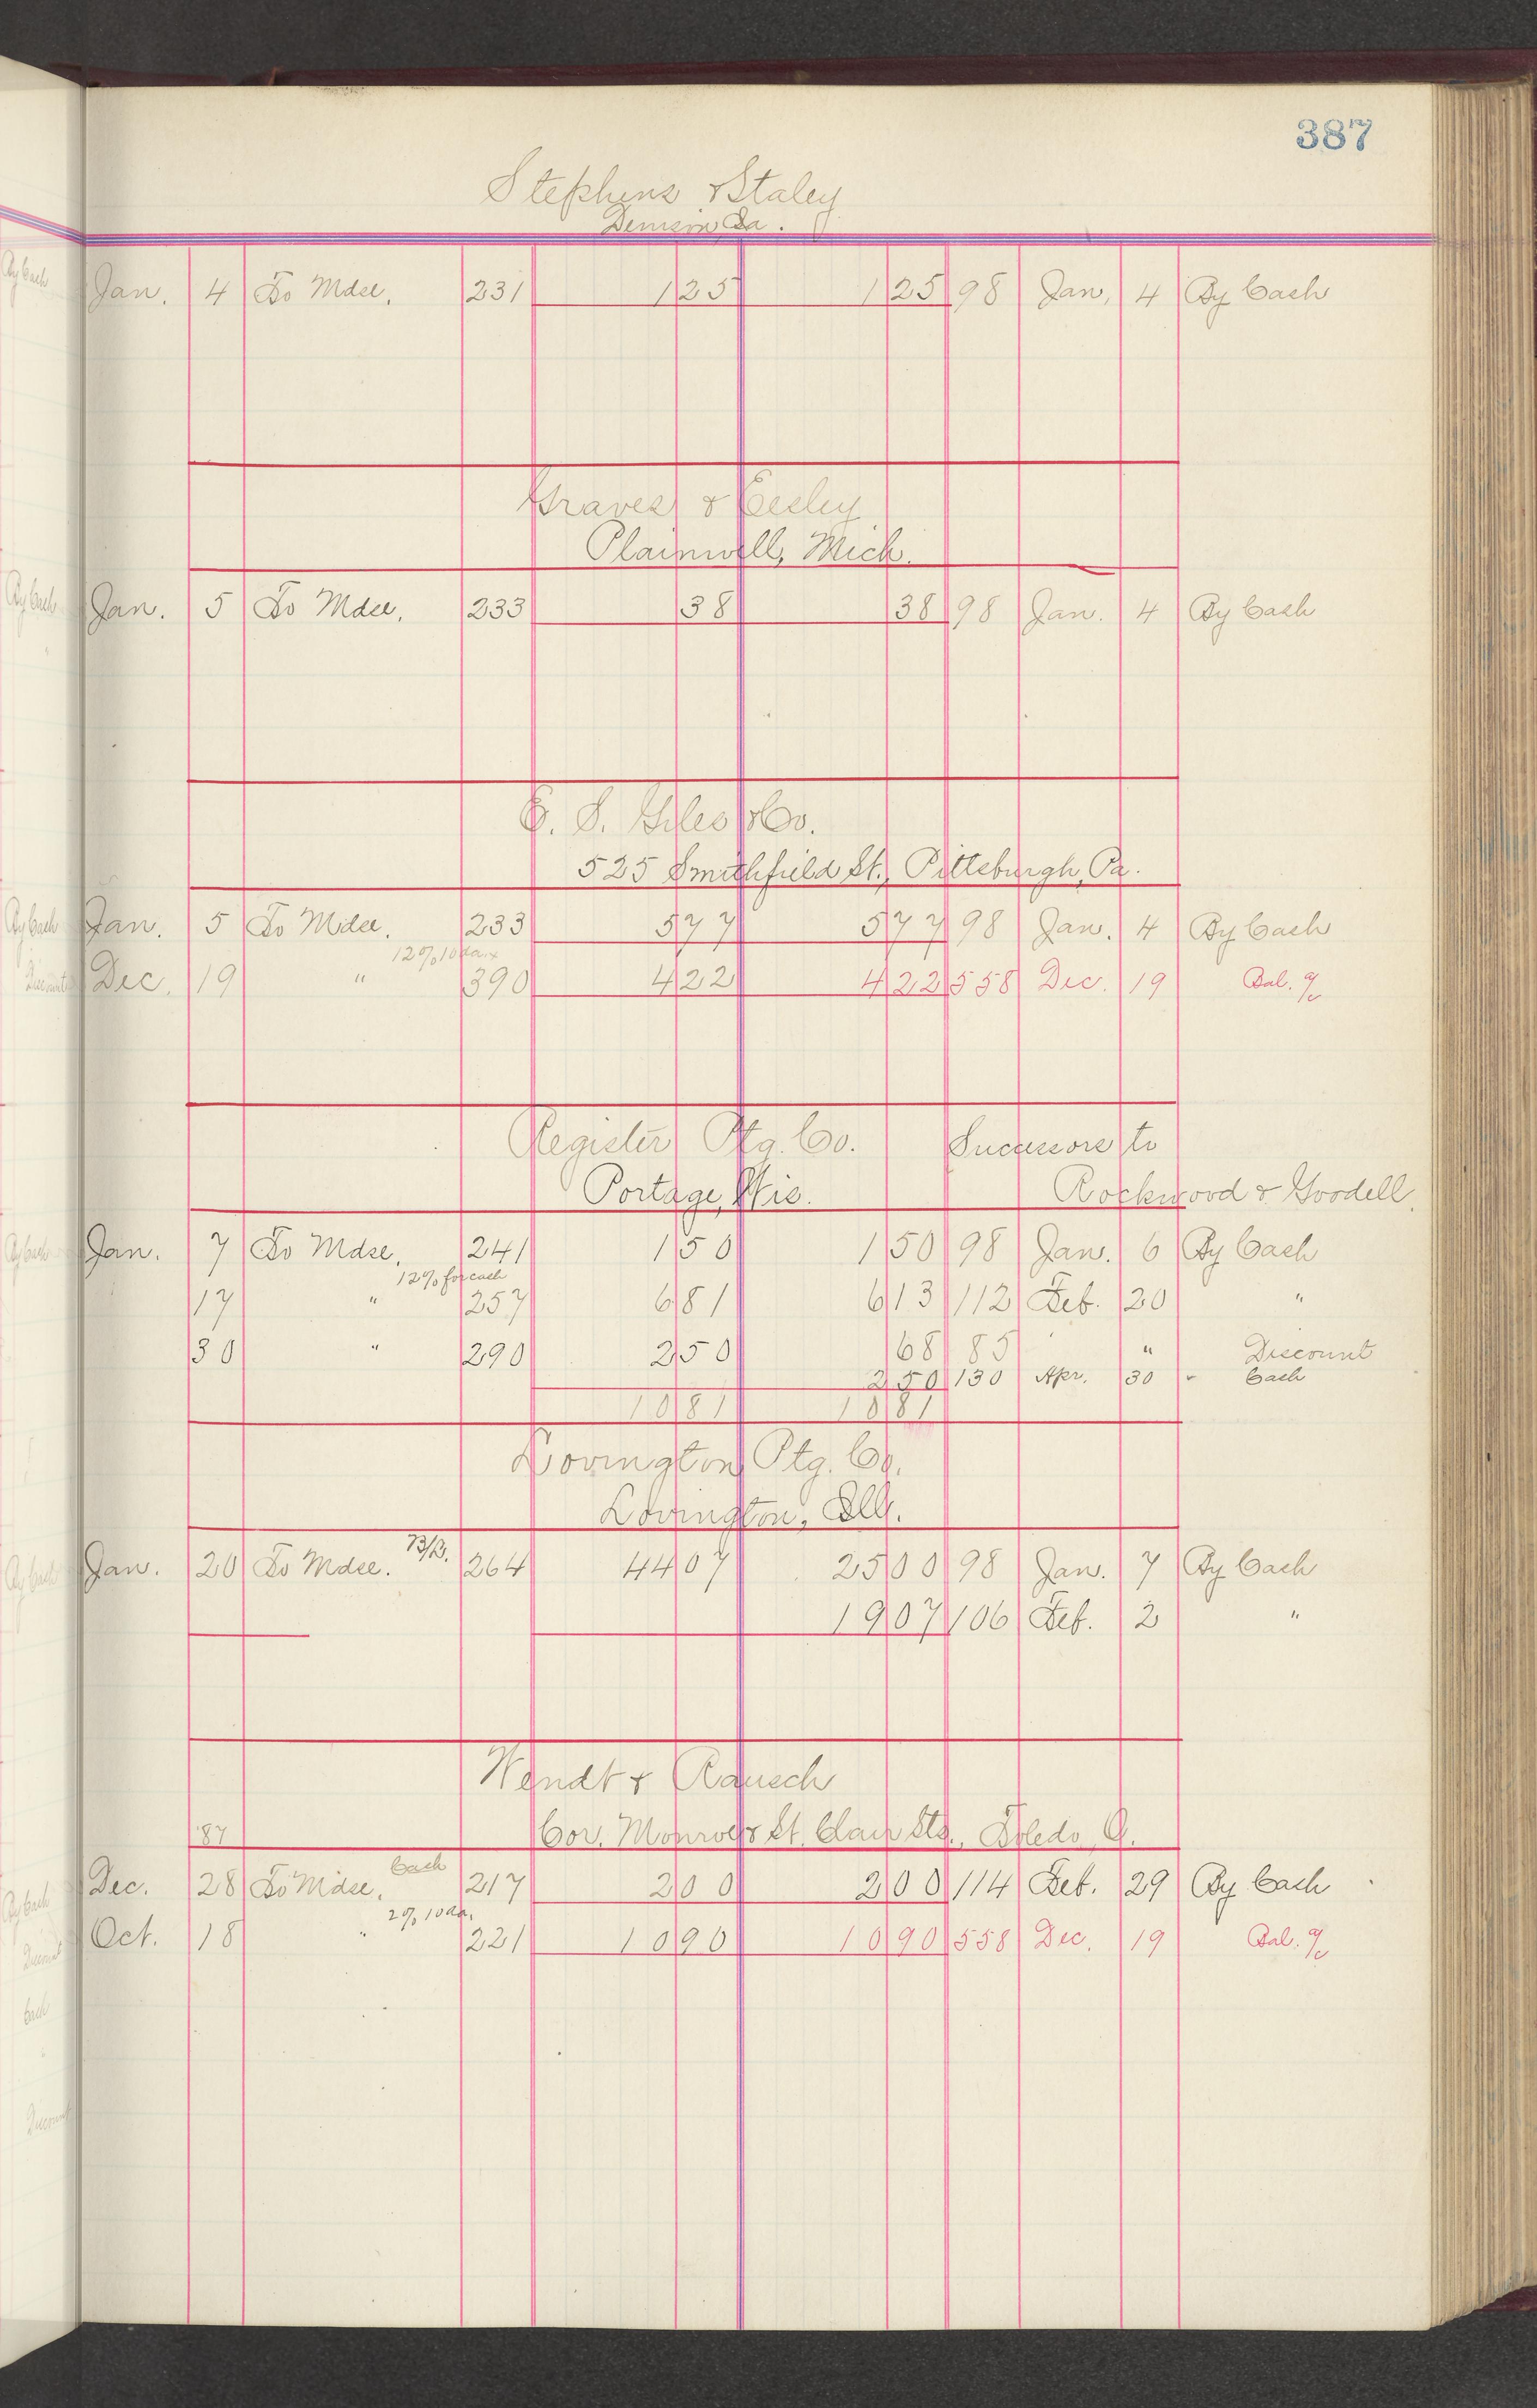 387
Stephens & Staley
Denison, Ia.
Jan. 4 To Mdse. 231 1 25 1 25 98 Jan. 4 By Cash
Graves & Eesley
Plainwell, Mich.
Jan. 5 To Mdse. 233 38 38 98 Jan. 4 By Cash
E. S. Giles & Co.
525 Smithfield St., Pittsburgh, Pa.
Jan. 5 To Mdse. 233 5 77 5 77 98 Jan. 4 By Cash
12% 10 da.
Dec. 19 " 390 4 22 4 22 558 Dec. 19 Bal. a/c
Register Ptg. Co. Successors to
Portage, Wis. Rockwood & Goodell.
Jan. 7 To Mdse. 241 1 50 1 50 98 Jan. 6 By Cash
12% for cash
17 " 257 6 81 6 13 112 Feb. 20 "
30 " 290 2 50 68 85 " Discount
2 50 130 Apr. 30 Cash
10 81 10 81
Lovington Ptg. Co.
Lovington, Ill.
Jan. 20 To Mdse. 264 44 07 25 00 98 Jan. 7 By Cash
19 07 106 Feb. 2 "
Wendt & Rausch
'87 Cor. Monroe & St. Clair Sts., Toledo, O.
Cash
Dec. 28 To Mdse. 217 2 00 2 00 114 Feb. 29 By Cash
2% 10 da.
Oct. 18 " 221 10 90 10 90 558 Dec. 19 Bal. a/c